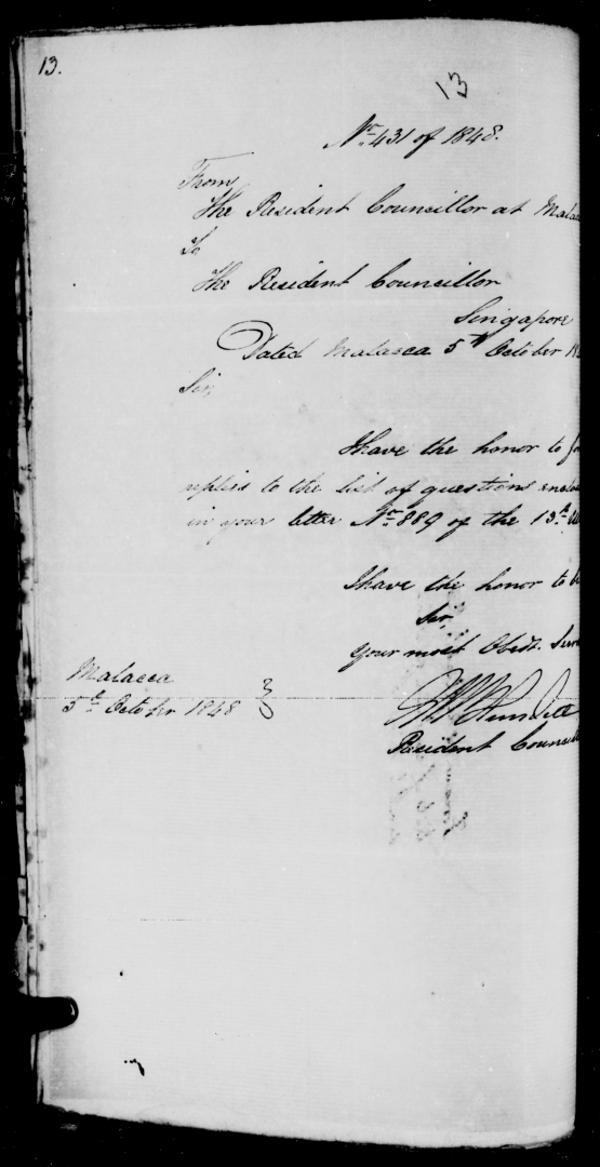 13.
13
No. 431 of 1848.
From
The Resident Councillor at Malac
To
The Resident Councillor
Singapore
Dated Malacca 5th October 18
Sir,
I have the honor to fo
replies to the list of questions enclo
in your letter No. 889 of the 13th
I have the honor to b
Sir,
Your most Obedt. Serv
Malacca
5th October 1848
Resident Councill